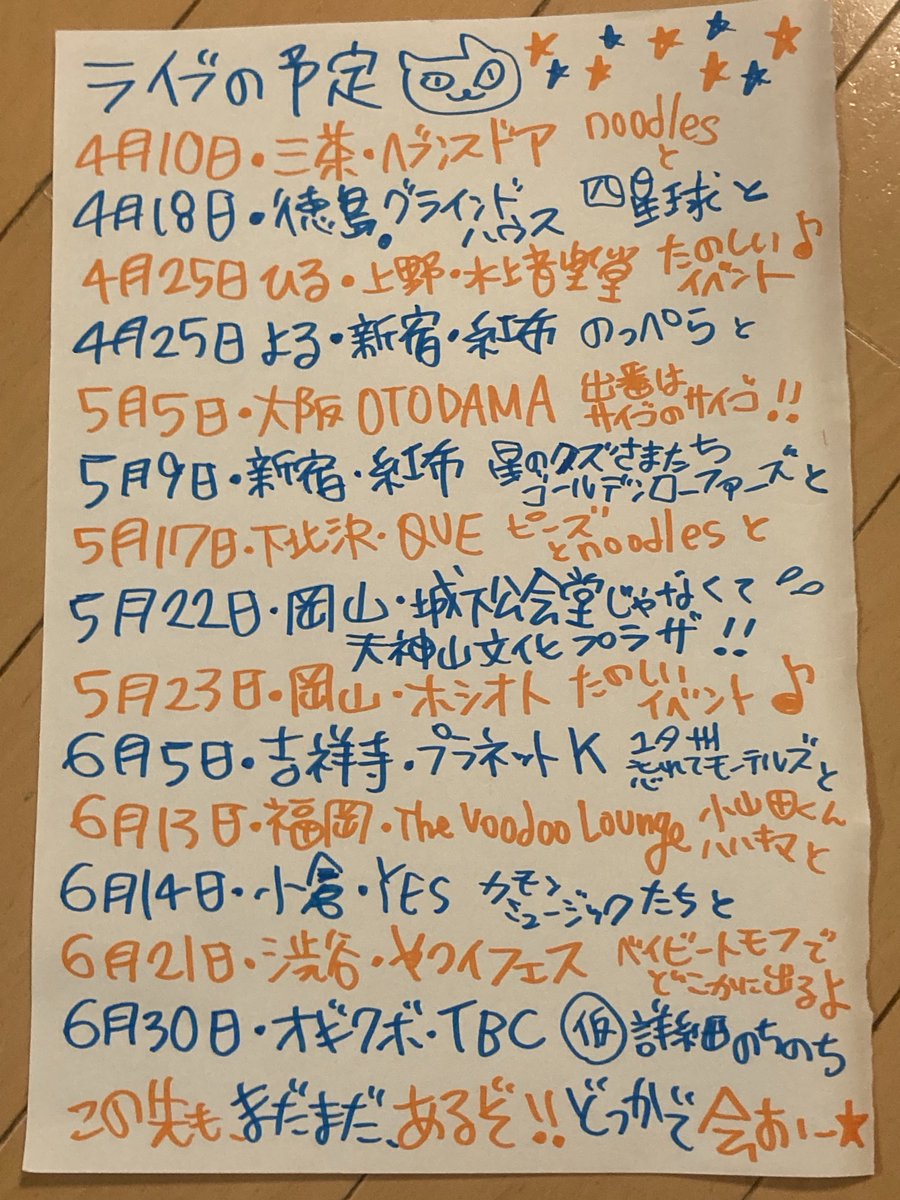 ライブの予定
4月10日・三茶・ヘブンスドア noodlesと
4月18日・徳島・グラインドハウス 四星球と
4月25日ひる・上野・水上音楽堂 たのしいイベント♪
4月25日よる・新宿・紅布 のっぺらと
5月5日・大阪 OTODAMA 出番はサイゴのサイゴ!!
5月9日・新宿・紅布 星のクズさまたち ゴールデンローファーズと
5月17日・下北沢・QUE ピーズとnoodlesと
5月22日・岡山・城下公会堂じゃなくて
天神山文化プラザ!!
5月23日・岡山・ホシオト たのしいイベント♪
6月5日・吉祥寺・プラネットK 忘れてモーテルズと
6月13日・福岡・The Voodoo Lounge 小山田くん ハハキマと
6月14日・小倉・YES カモンミュージックたちと
6月21日・渋谷・ヤツイフェス ベイビートモフでどこかに出るよ
6月30日・オギクボ・TBC 仮 詳細のちのち
この先も、まだまだ、あるぞ!!どっかで会おー★